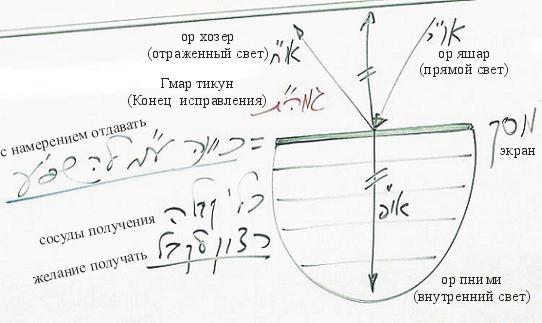 ор хозер
(отраженный свет)
או"ח
או"י
ор яшар
(прямой свет)
Гмар тикун
(Конец исправления)
גמה"ת
с намерением отдавать
= כוונה ע"מ להשפיע
מסך
экран
сосуды получения
כלי קבלה
желание получать
רצון לקבל
או"פ
ор пними
(внутренний свет)